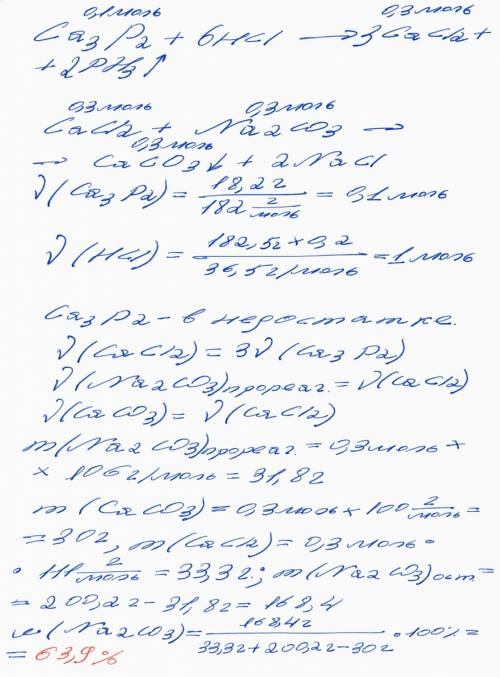 0,1моль 0,3моль
Ca3P2 + 6HCl → 3CaCl2 +
+ 2PH3↑
0,3моль 0,3моль
CaCl2 + Na2CO3 →
0,3моль
→ CaCO3↓ + 2NaCl
ν(Ca3P2) = 18,2г / 182 г/моль = 0,1моль
ν(HCl) = 182,5г × 0,2 / 36,5г/моль = 1моль
Ca3P2 - в недостатке.
ν(CaCl2) = 3ν(Ca3P2)
ν(Na2CO3)прореаг. = ν(CaCl2)
ν(CaCO3) = ν(CaCl2)
m(Na2CO3)прореаг. = 0,3моль ×
× 106г/моль = 31,8г
m(CaCO3) = 0,3моль × 100 г/моль =
= 30г, m(CaCl2) = 0,3моль ·
· 111 г/моль = 33,3г; m(Na2CO3)ост. =
= 200,2г - 31,8г = 168,4
ω(Na2CO3) = 168,4г / 33,3г + 200,2г - 30г · 100% =
= 63,9%